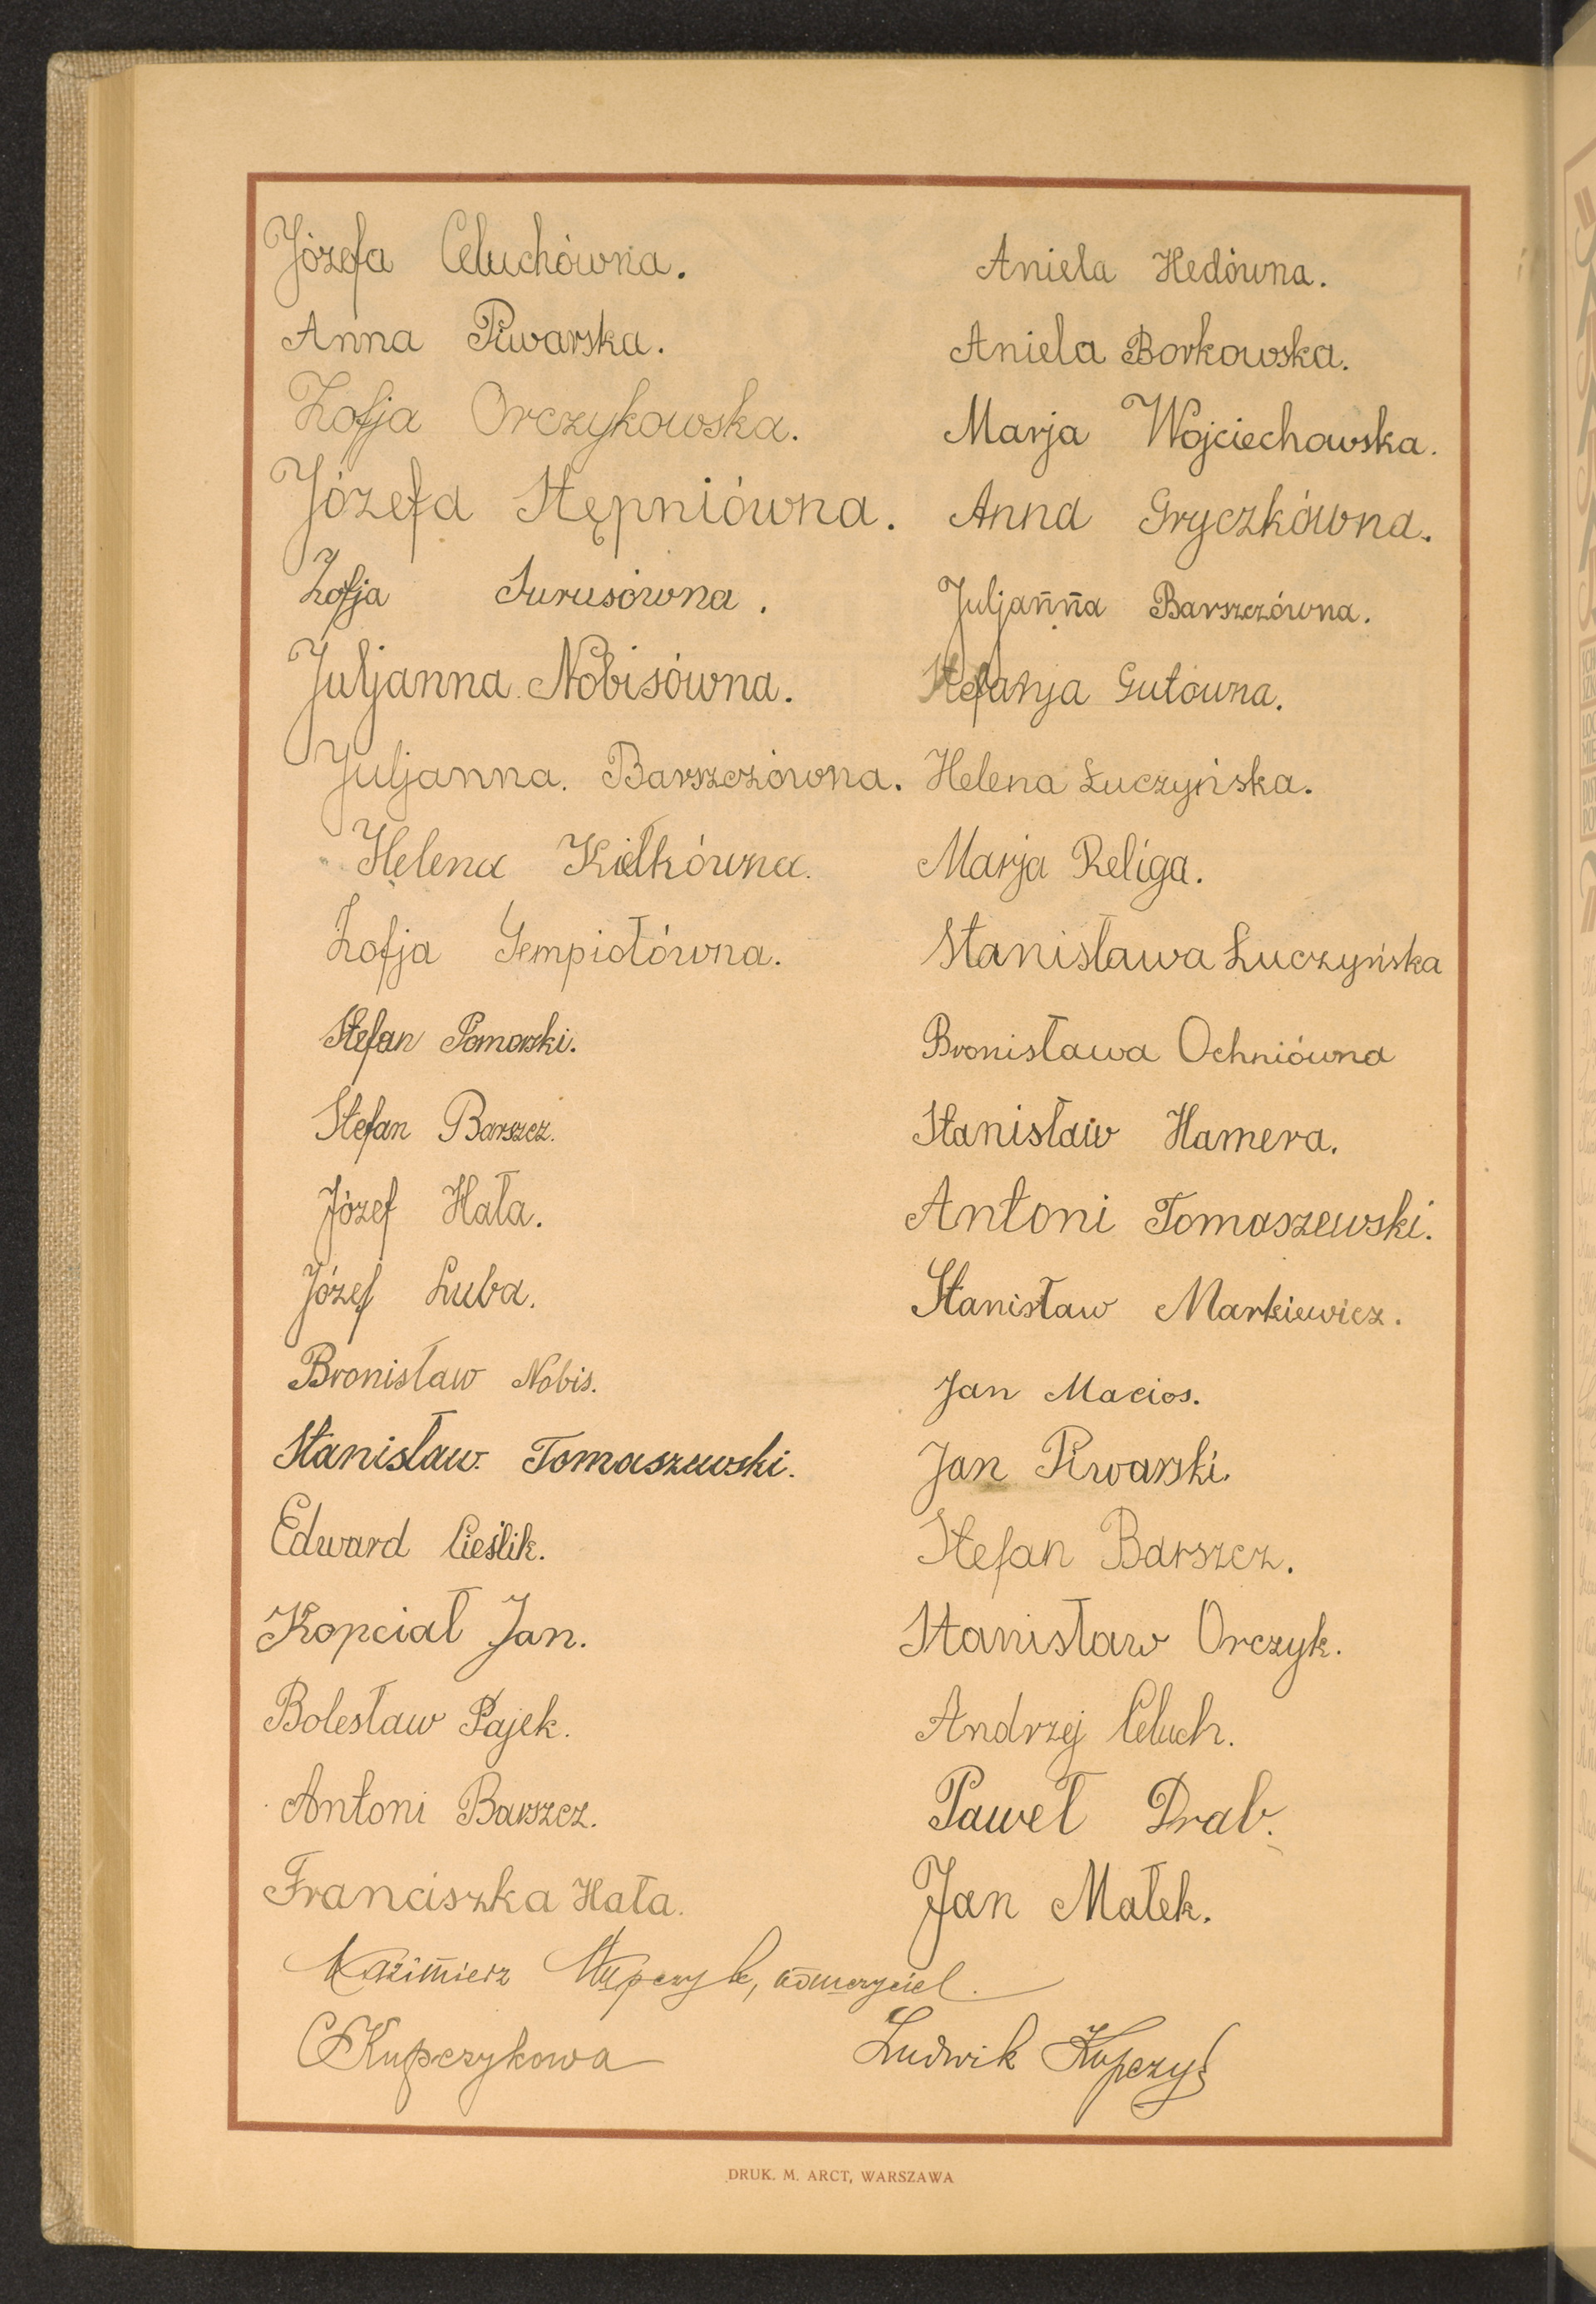 Józefa Celuchówna.
Anna Piwarska.
Zofja Orczykowska.
Józefa Stępniówna.
Zofja Surusówna.
Juljanna Nobisówna.
Juljanna. Barszczówna.
Helena Kiełkówna.
Zofja Gempiołówna.
Stefan Pomorski.
Stefan Barszcz.
Józef Hała.
Józef Luba.
Bronisław Nobis.
Stanisław. Tomaszewski.
Edward Cieślik.
Kopciał Jan.
Bolesław Pajek.
Antoni Barszcz.
Franciszka Hała.
Aniela Hedówna.
Aniela Borkowska.
Marja Wojciechowska.
Anna Gryczkówna.
Juljanna Barszczówna.
Stefanja Gutówna.
Helena Łuczyńska.
Marja Religa.
Stanisława Łuczyńska
Bronisława Ochniówna
Stanisław Hamera.
Antoni Tomaszewski.
Stanisław Markiewicz.
Jan Macios.
Jan Piwarski.
Stefan Barszcz.
Stanisław Orczyk.
Andrzej Celuch.
Paweł Drab.
Jan Małek.
Kazimierz Kupczyk, nauczyciel.
Kupczykowa
Ludwik Kupczyk
DRUK. M. ARCT, WARSZAWA